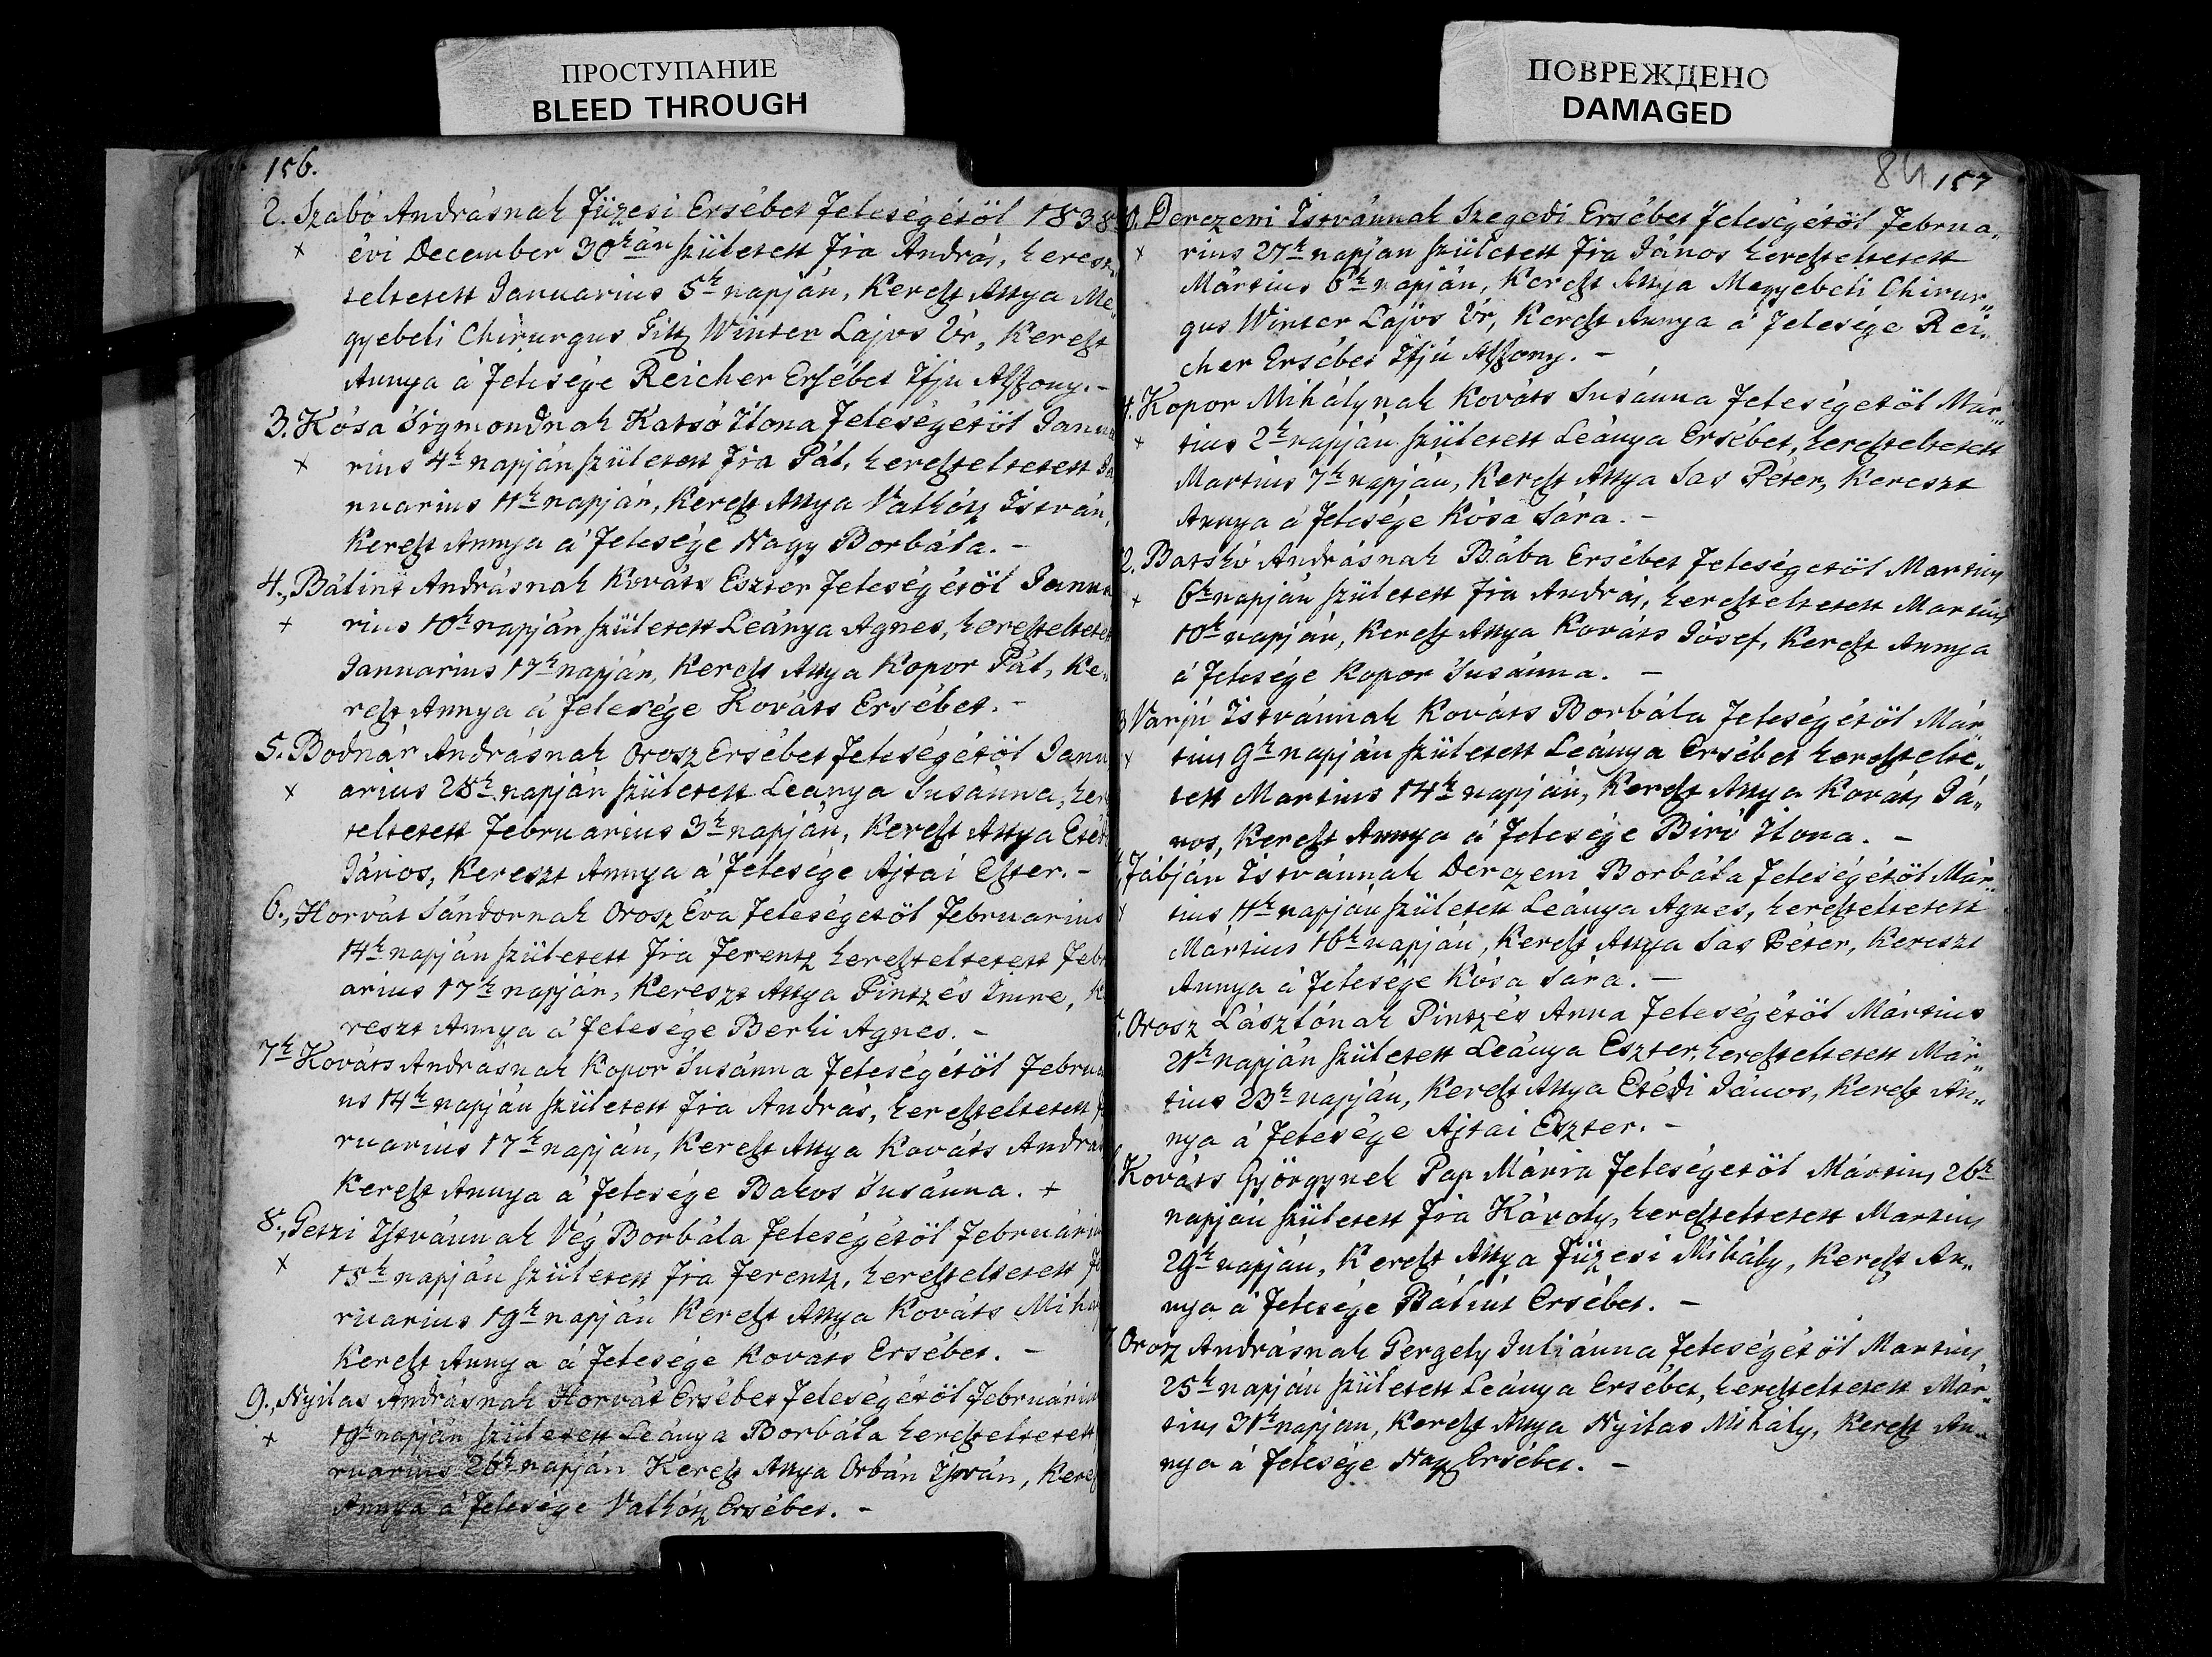 ПРОСТУПАНИЕ
BLEED THROUGH
ПОВРЕЖДЕНО
DAMAGED
156.
2. Szabó Andrásnak Füzesi Ersébet Feleségétöl 1838
× évi December 30k án született Fia András, keresz„
teltetett Januarius 5k napján, Kereszt Attya Me„
gyebeli Chirurgus Titt Winter Lajos Úr, Kereszt
Annya á Felesége Reicher Ersébet Ifju Aszszony. –
3. Kósa Sigmondnak Katsó Ilona Feleségétöl Janua
× rius 4k napján született Fia Pál, kereszteltetett Ja
nuarius 11k napján, Kereszt Attya Vathótz István,
Kereszt Annya á Felesége Nagy Borbála. –
4., Bálint Andrásnak Kováts Eszter Feleségétöl Janua
+ rius 10k napján született Leánya Agnes, kereszteltetet
Januarius 17k napján, Kereszt Attya Kopor Pál, Ke„
reszt Annya á Felesége Kováts Ersébet. –
5. Bodnár Andrásnak Orosz Ersébet Feleségétöl Janu
× arius 28k napján született Leánya Susánna, ker
teltetett Februarius 3k napján, Kereszt Attya Etéd
János, Kereszt Annya á Felesége Ajtai Eszter. –
6., Horvát Sándornak Orosz Éva Feleségétöl Februarius
14k napján született Fia Ferentz kereszteltetett Feb
arius 17k napján, Kereszt Attya Pintzés Imre, K
reszt Annya á Felesége Berki Agnes. –
7k Kováts Andrásnak Kopor Susánna Feleségétöl Februa
us 14k napján született Fia András, kereszteltetett F
ruarius 17k napján, Kereszt Attya Kováts Andras
Kereszt Annya á Felesége Bakos Susánna. +
8., Getzi Istvánnak Vég Borbála Feleségétöl Februáriu
× 15k napján született Fia Ferentz, kereszteltetett Fe
ruarius 19k napján Kereszt Attya Kováts Mihá
Kereszt Annya á Felesége Kovats Ersébet. –
9., Nyilas Andrásnak Horvát Ersébet Feleségétöl Februáriu
× 19k napján született Leánya Borbála kereszteltetett
ruarius 26k napján Kereszt Attya Orbán István, Keresz
Annya á Felesége Vathótz Ersébet. –
84 157
0. Derczeni Istvánnak Szegedi Ersébet Feleségétöl Februa„
× rius 27k napjan született Fia János kereszteltetett
Mártius 6k napján, Kereszt Attya Megyebeli Chirur„
gus Winter Lajos Úr, Kereszt Annya á Felesége Rei„
cher Ersébet Ifjú Aszszony. –
1. Kopor Mihálynak Kováts Susánna Feleségetöl Már„
+ tius 2k napján született Leánya Ersébet, kereszteltetett
Martius 7k napján, Kereszt Attya Sas Péter, Kereszt
Annya á Felesége Kósa Sára. –
2. Batskó Andrásnak Bába Ersébet Feleségetöl Martius
+ 6k napján született Fia András, kereszteltetett Martius
10k napján, Kereszt Attya Kováts Jósef, Kereszt Annya
á Felesége Kopor Susánna. –
3 Varjú Istvánnak Kováts Borbála Feleségétöl Már„
× tius 9k napján született Leánya Ersébet keresztelte„
tett Martius 14k napján, Kereszt Attya Kováts Já„
nos, Kereszt Annya á Felesége Biró Ilona. –
Fábján Istvánnak Derczeni Borbála Feleségétöl Már„
× tius 11k napján született Leánya Agnes, kereszteltetett
Mártius 16k napján, Kereszt Attya Sas Péter, Kereszt
Annya á Felesége Kósa Sára. –
Orosz Lászlónak Pintzés Anna Feleségétöl Mártius
21k napján született Leánya Eszter, kereszteltetett Már„
tius 23k napján, Kereszt Attya Etédi János, Kereszt An„
nya á Felesége Ajtai Eszter. –
Kováts Györgynek Pap Mária Feleségetöl Mártius 26k
napján született Fia Károly, kereszteltetett Martius
29k napján, Kereszt Attya Füzesi Mihály, Kereszt An„
nya á Felesége Bálint Ersébet. –
7. Orosz Andrásnak Gergely Juliánna Feleségétöl Martius
25k napján született Leánya Ersébet, kereszteltetett Már„
tius 31k napján, Kereszt Attya Nyilas Mihály, Kereszt An„
nya á Felesége Nagy Ersébet. –